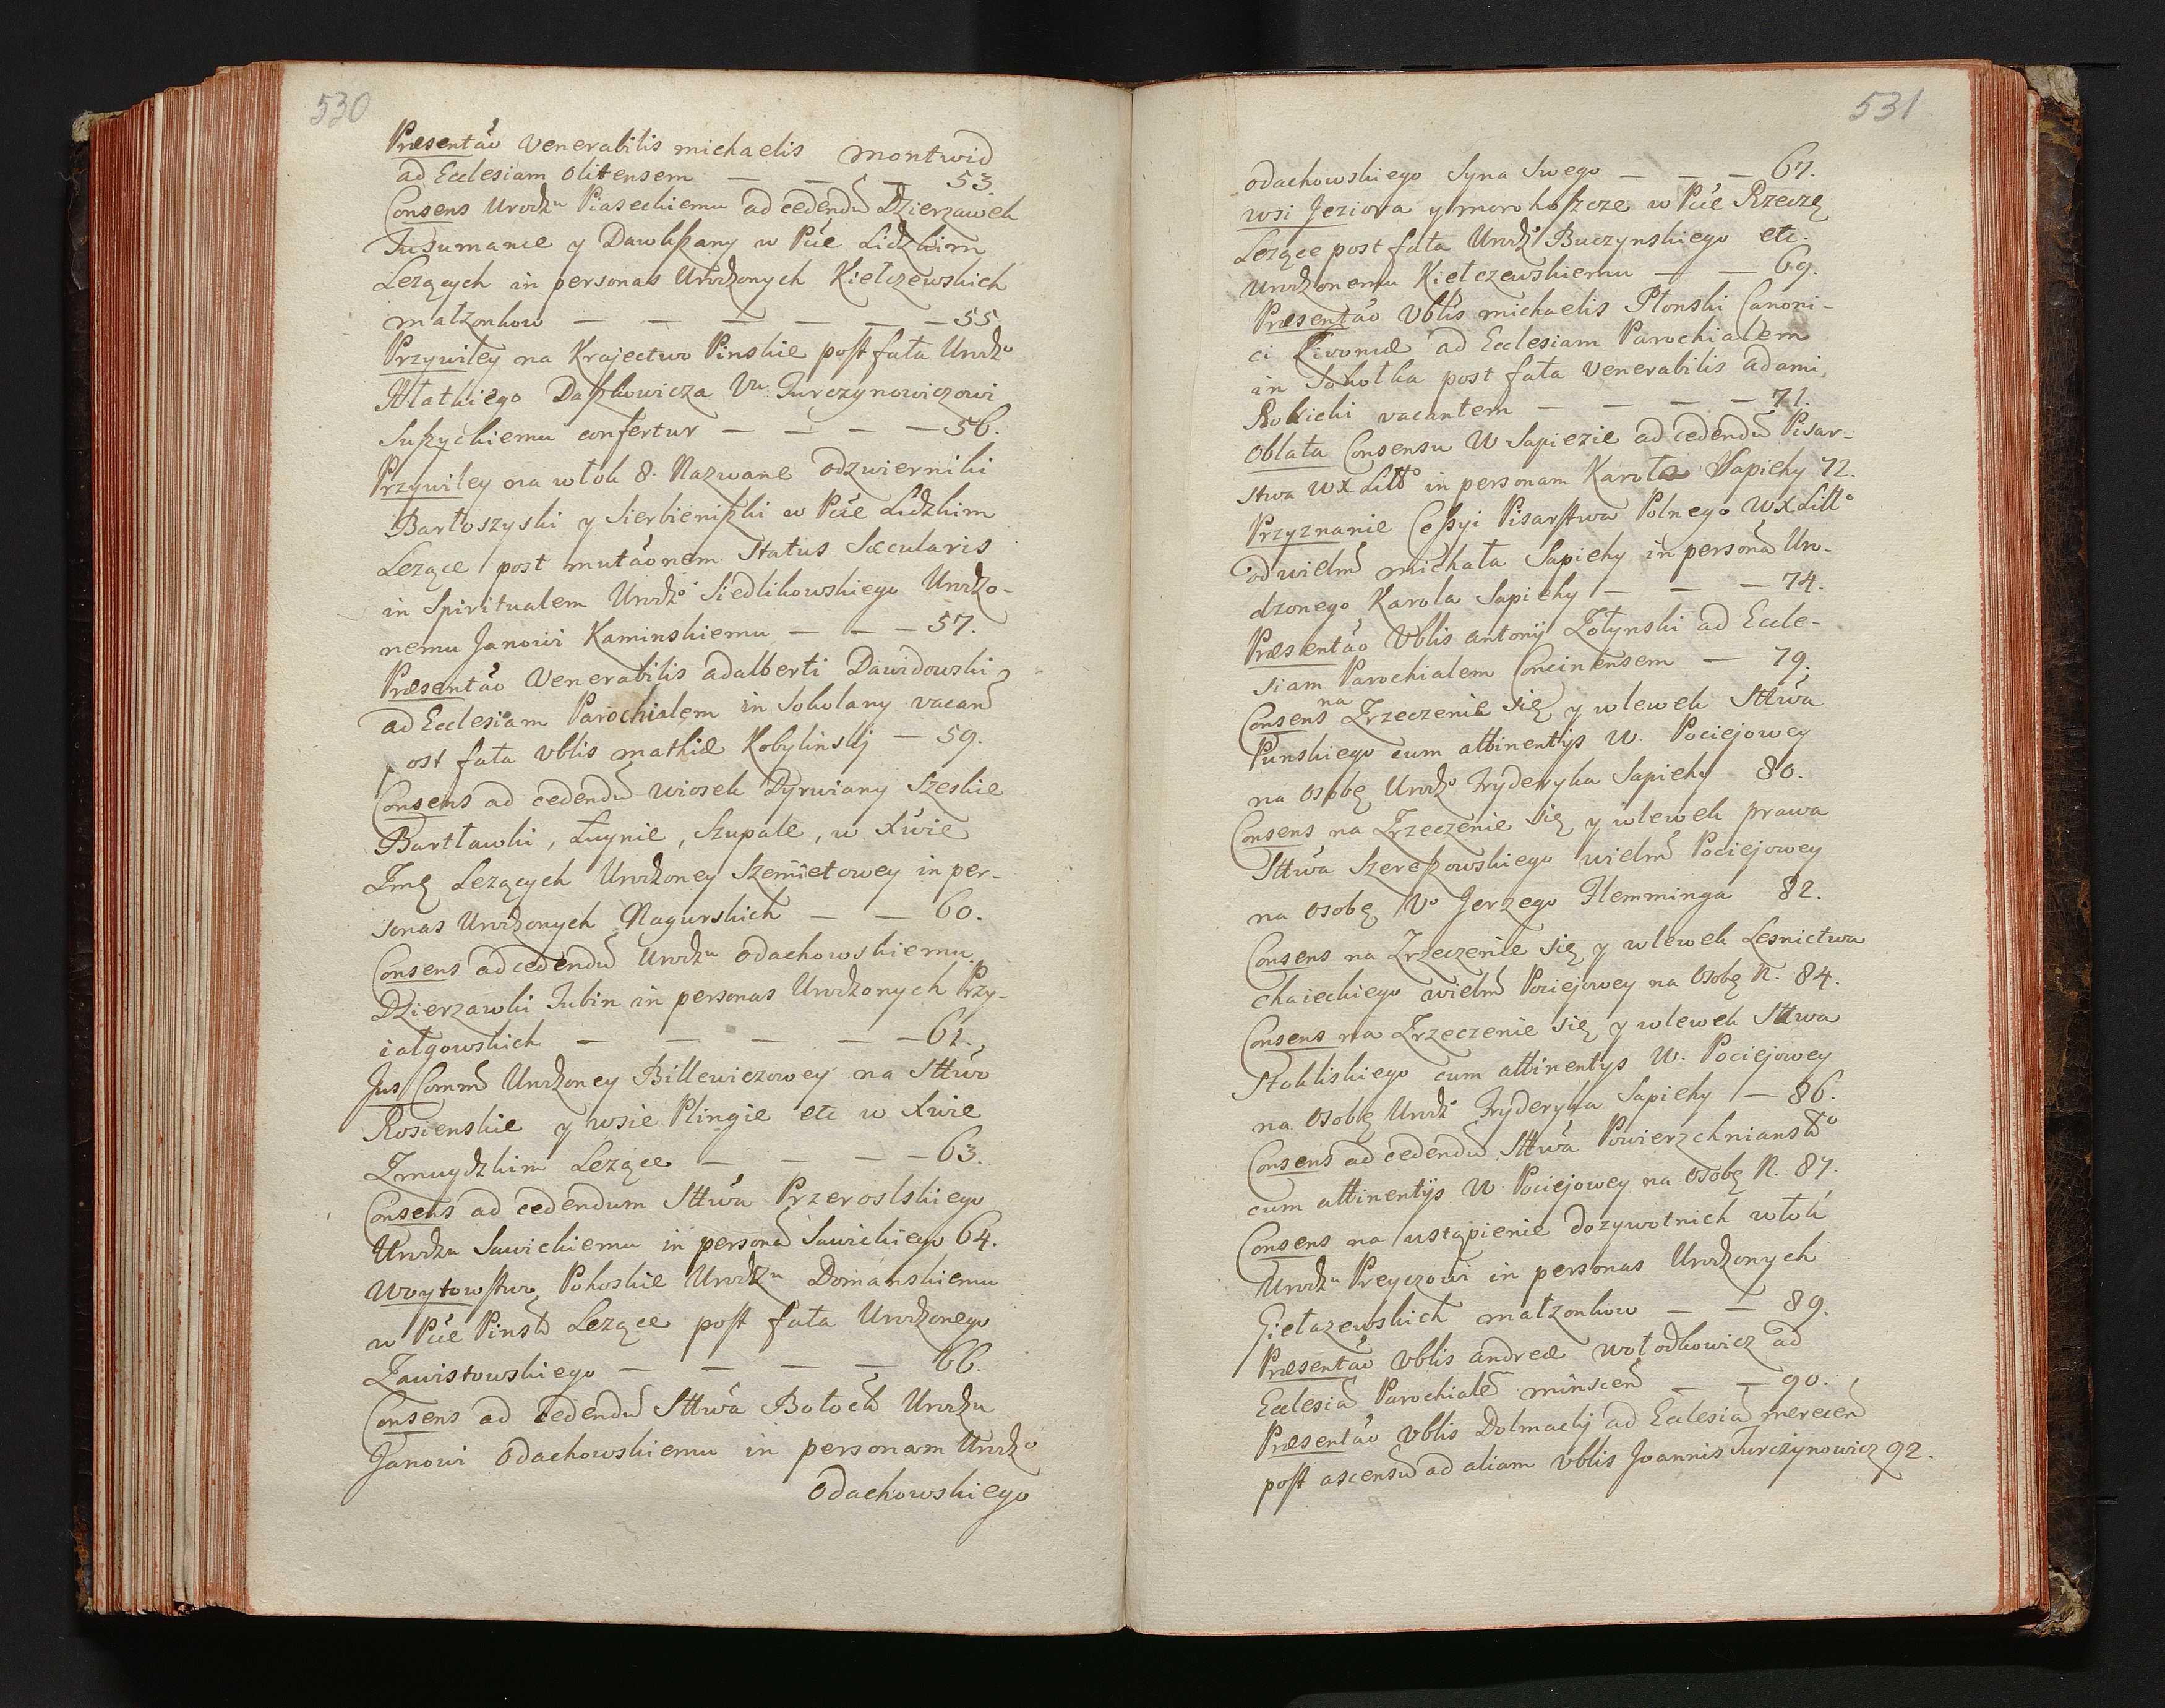 530
Præsentáo Venerabilis michaelis montwid
ad Ecclesiam Olitensem — — — 53.
Consens Urodzu Piaseckiemu ad cedendũ Dzierzawek
Jusumańce y Dawkszany w Pcie Lidzkim
Lezących in personas Urodzonych Kiełczewskich
małzonkow — — — — — — 55
Przywiley na Krajectwo Pinskie post fata Urodzo
Hłatkiego Daszkowicza Vu Jurczynowiczowi
Suszyckiemu confertur — — — — 56.
Przywiley na włok 8. Nazwane Odzwierniki
Bartoszyski y Sierbieniszki w Pcie Lidzkim
Lezące post mutáonem Status Sæcularis
in Spiritualem Urodzo Siedlikowskiego Urodzo-
nemu Janowi Kaminskiemu — — — 57.
Præsentáo Venerabilis adalberti Dawidowski
ad Ecclesiam Parochialem in Sokolany vacañ
post fata vblis mathiæ Kobylinskj — 59.
Consens ad cedendũ wiosek Dyrwiany Szeskie
Bartławki, Łuynie, Szupale, w Xwie
Zmũ Lezących Urodzoney Szemietowey in per-
sonas Urodzonych Nagurskich — — 60.
Consens ad cedendũ Urodzu Odachowskiemu
Dzierzawki Jubin in personas Urodzonych Przy-
iałgowskich — — — — — 61.
Jus Comm̃ Urodzoney Billewiczowey na Sttwo
Rosienskie y wsie Plingie etc w Xwie
Zmuydzkim Lezące — — — — 63.
Consens ad cedendum Sttwa Przeroslskiego
Urodzu Sawickiemu in personã Sawickiego 64.
Woytowstwo Pohoskie Urodzu Domanskiemu
w Pcie Pinsk̃ Lezące post fata Urodzonego
Zawistowskiego — — — — 66.
Consens ad cedendũ Sttwa Bołock̃ Urodzu
Janowi Odachowskiemu in personam Urodzo
Odachowskiego
531
Odachowskiego Syna Swego — — — 67.
wsi Jeziora y morohoszcze w Pcie Rzeczę
Lezące post fata Urodzo Buczynskiego etc.
Urodzonemu Kiełczewskiemu — — 69.
Præsentáo Vblis michaelis Płonski Canoni-
ci Livoniæ ad Ecclesiam Parochialem
in Sokołka post fata Venerabilis adami
Rokicki vacantem — — — — 71.
Oblata Consensu W Sapiezie ad cedendũ Pisar-
stwa WX Litto in personam Karola Sapiehy 72.
Przyznanie Cessyi Pisarstwa Polnego WX Litto
od wielm̃ michała Sapiehy in personã Uro-
dzonego Karola Sapiehy — — — 74.
Præsentáo Vblis antonij Zołynski ad Eccle-
siam Parochialem Concinensem — 79.
Consens na Zrzeczenie się y wlewek Sttwa
Punskiego cum attinentijs W. Pociejowey
na Osobę Urodzo Fryderyka Sapiehy 80.
Consens na Zrzeczenie się y wlewek prawa
Sttwa Szereszowskiego wielm̃ Pociejowey
na Osobę Vo Jerzego Flemminga 82.
Consens na Zrzeczenie się y wlewek Lesnictwa
Chaieckiego wielm̃ Pociejowey na Osobę N. 84.
Consens na Zrzeczenie się y wlewek Sttwa
Stokliskiego cum attinentys W. Pociejowey
na Osobę Urodzo Fryderyka Sapiehy — 86.
Consens ad cedendũ Sttwa Powierzchnianskọ
cum attinentijs W. Pociejowey na Osobę N. 87.
Consens na ustąpienie dozywotnich włok
Urodzu Preyczowi in personas Urodzonych
Giełazewskich małzonkow — — 89.
Præsentáo Vblis andreæ wołodkowicz ad
Ecclesiã Parochialẽ minsceñ — — 90.
Præsentáo vblis Dolmackj ad Ecclesiã mereceñ
post ascensũ ad aliam vblis Joannis Turczynowicz 92.